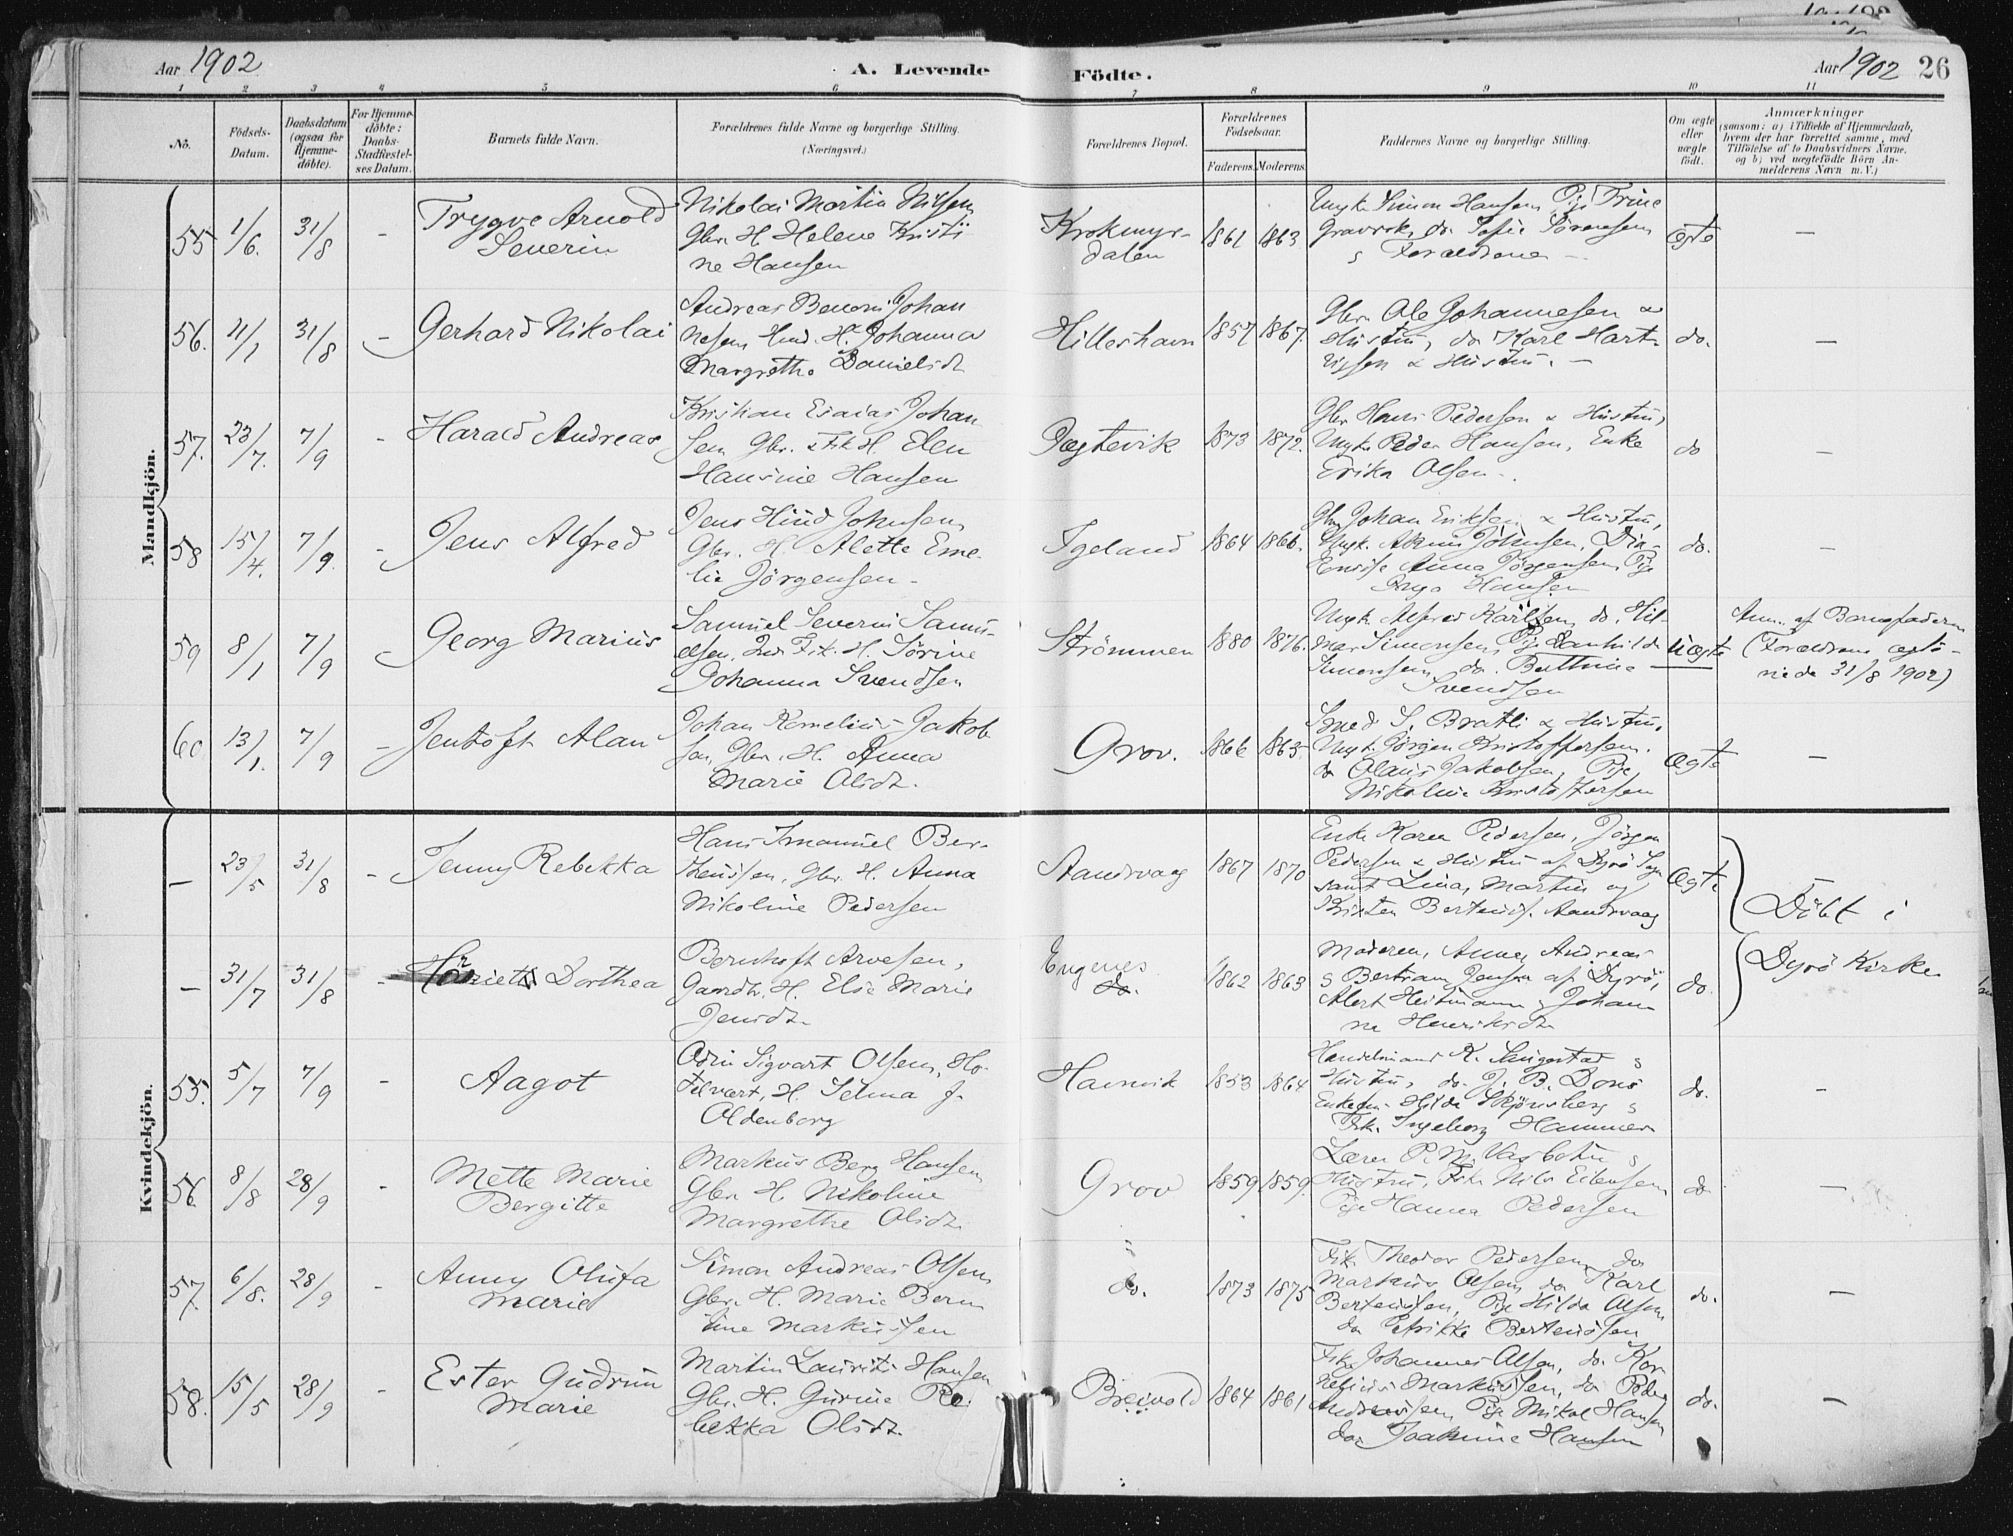 Aar 1902
A. Levende Födte.
Aar 1902 26
1 2 3 4 5 6 7 8 9 10 11
No.
Födsels-Datum.
Daabsdatum (ogsaa for Hjemme-döbte).
For Hjemme-döbte: Daabs-Stadfæstel-ses Datum.
Barnets fulde Navn.
Forældrenes fulde Navne og borgerlige Stilling. (Næringsvei.)
Forældrenes Bopæl.
Forældrenes Födselsaar.
Faderens. Moderens.
Faddernes Navne og borgerlige Stilling.
Om ægte eller uægte födt.
Anmærkninger (saasom: a) i Tilfælde af Hjemmedaab, hvem der har forrettet samme, med Tilföielse af to Daabsvidners Navne, og b) ved uægtefödte Börn An-melderens Navn m. V.)
Mandkjön.
55 1/6. 31/8 - Trygve Arnold
Severin
Nikolai Martin Nilsen
Gbr. H. Helene Kristi
ne Hansen
Krokmyr-
dalen
1861 1863
Ungk. Simon Hansen, Pige Trine
do. Sofie Sörensen
s Forældrene -
ægte —
56. 11/1 31/8 - Gerhard Nikolai
Andreas Benoni Johan
nesen Ind. H. Johanna
Margrethe Danielsdt
Hilleshavn 1857 1867.
Gbr. Ole Johannesen &
Hustru, do Karl Hart-
vigsen & Hustru. -
do. —
57. 23/7. 7/9 - Harald Andreas
Kristian Esaias Johan
sen Gbr. & Fisk. H. Elen
Hansine Hansen
Jægtevik 1873 1872.
Gbr Hans Pedersen & Hustru,
Ungk. Peder Hansen, Enke
Erika Olsen -
do —
58 15/4. 7/9. - Jens Alfred
Jens Hind Johnsen,
Gbr. H. Alette Eme-
lie Jörgensen -
Igeland 1864 1866.
Gbr Johan Eriksen & Hustru,
Ungk. Johnsen,
Anna Jörgensen, Pige
Inga Hansen
do. —
59 8/1 7/9 - Georg Marius
Samuel Severin Samu-
elsen, Ind. Fisk. H. Sörine
Johanna Svendsen
Strömmen 1880 1876.
Ungk. Alfred Karlsen, do. Hil-
mar Simonsen, Pige Ranhilda
Simonsen, do. Berthine
Svendsen
Uægte
Anm. af Barnefaderen
(Forældrene ægte-
viede 31/8 1902)
60 13/1. 7/9 - Jentoft Alan
Johan Kornelius Jakob
sen, Gbr. H. Anna
Marie Olsdt.
Grov. 1866 1863
Smed S. Bratli & Hustru,
Ungk. Jörgen Kristoffersen.
do Olaus Jakobsen, Pige
Nikoline Kristoffersen
ægte —
Kvindekjön.
— 23/5 31/8 - Jenny Rebekka
Hans Imanuel Ber-
theussen, Gbr. H. Anna
Nikoline Pedersen
Aandsvaag 1867 1870
Enke Karen Pedersen, Jörgen
Pedersen & Hustru af Dyrö Sogn
samt Lina, Martin og
Kristen Berteus. Aandsvaag
ægte
Döbt i
— 31/7 31/8 - Harriet Dorthea
Bernhoft Arvesen,
Gaardbr. H. Else Marie
Jensdt.
Engenes
do.
1862 1863
Moderen, Anna Andreas
s Bertram Jensen af Dyrö,
Albert Heitmann s Johan
ne Henriksdt.
do.
Dyrö Kirke
55. 5/7 7/9 - Aagot
Odin Sigvart Olsen, Ho-
telvært, H. Selma f.
Oldenborg
Havnvik 1853 1864
Handelsmand K. s
Hustru, do. J. B. Dons
Enkefru Hilda Skjönsberg s
Frk. Ingeborg Hammer
do. —
56 8/8 28/9 - Mette Marie
Bergitte
Markus Berg Hansen
Gbr. H. Nikoline
Margrethe Olsdt.
Grov 1859 1859.
Lærer P. M. Vasbotn s
Hustru, Fisk. Nils Eilertsen,
Pige Hanna Pedersen
do —
57. 6/8. 28/9 - Anny Olufa
Marie
Simon Andreas Olsen
Gbr. H. Marie Bern
tine Markussen
do. 1873 1875
Fisk. Theodor Pedersen, do
Markus Olsen, do Karl
Berteussen, Pige Hilda Olsen
do Petrikke Berteussen
do. —
58. 15/5 28/9 - Ester Gudrun
Marie
Martin Laurits Hansen
Gbr. H. Gurine Re-
bekka Olsdt.
Breivold 1864 1861
Fisk. Johannes Olsen, do. Kor
nelius Markussen, do Peder
Andreassen, Pige Nikol. Hansen
do. Joakime Hansen
do. —